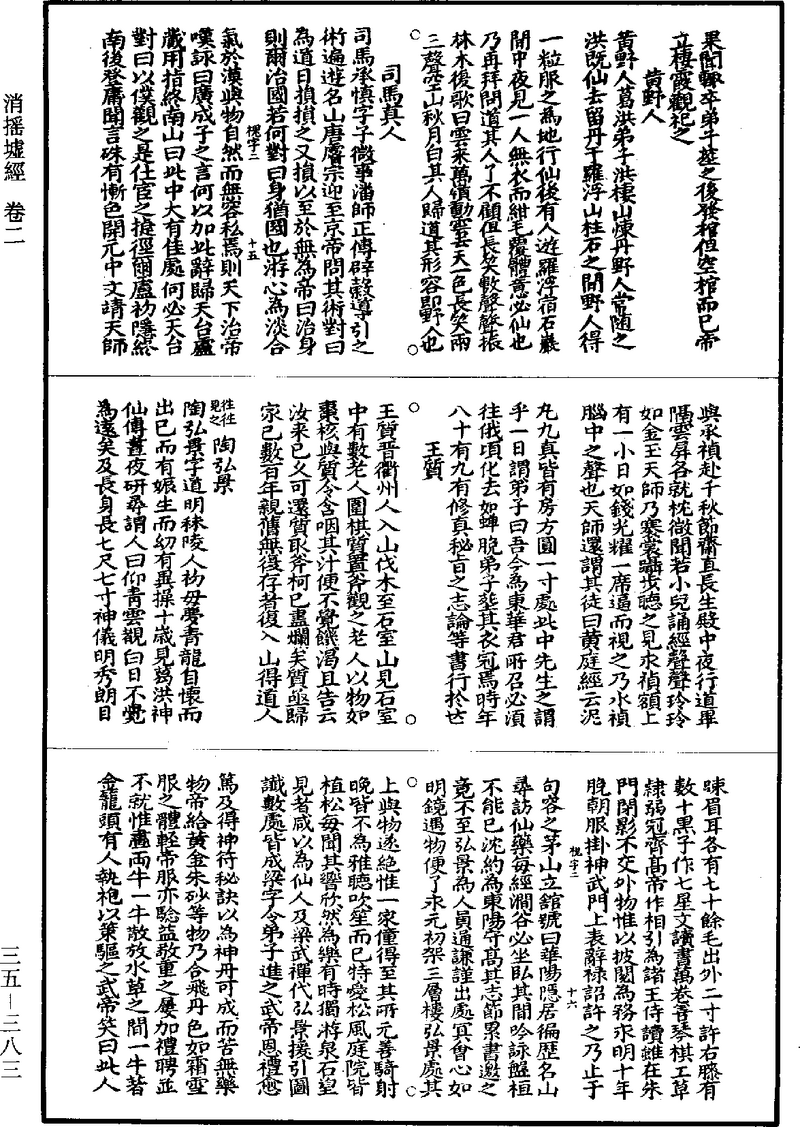 消搖墟經 卷二
果聞輒卒弟子葬之後發棺但空棺而已帝
立棲霞觀祀之
黃野人
黃野人葛洪弟子洪棲山煉丹野人常隨之
洪既仙去留丹于羅浮山柱石之間野人得
一粒服之為地行仙後有人遊羅浮宿石巖
間中夜見一人無衣而紺毛覆體意必仙也
乃再拜問道其人了不顧但長笑數聲聲振
林木復歌曰雲來萬嶺動雲去天一色長笑兩
三聲空山秋月白其人歸道其形容即野人也
司馬真人
司馬承禎字子微事潘師正傳辟穀導引之
術遍遊名山唐睿宗迎至京帝問其術對曰
為道日損損之又損以至於無為帝曰治身
則爾治國若何對曰身猶國也游心為淡合
槐字二 十五
氣於漠與物自然而無容私焉則天下治帝
嘆詠曰廣成子之言何以加此辭歸天台盧
藏用指終南山曰此中大有佳處何必天台
對曰以僕觀之是仕宦之捷徑爾盧初隱終
南後登庸聞言殊有慚色開元中文靖天師
與承禎赴千秋節齋直長生殿中夜行道畢
隔雲屏各就枕微聞若小兒誦經聲聲玲玲
如金玉天師乃褰裳躡步聽之見承禎額上
有一小日如錢光耀一席逼而視之乃承禎
腦中之聲也天師還謂其徒曰黃庭經云泥
丸九真皆有房方圓一寸處此中先生之謂
乎一日謂弟子曰吾今為東華君所召必須
往俄頃化去如蟬脫弟子塟其衣冠焉時年
八十有九有修真秘旨之志論等書行於世
王質
王質晉衢州人入山伐木至石室山見石室
中有數老人圍棋質置斧觀之老人以物如
棗核與質令含咽其汁便不覺饑渴且告云
汝來已久可還質取斧柯已盡爛矣質亟歸
家已數百年親舊無復存者復入山得道人
往往見之
陶弘景
陶弘景字道明秣陵人初母夢青龍自懷而
出已而有娠生而幼有異操十歲見葛洪神
仙傳晝夜研尋謂人曰仰青雲觀白日不覺
為遠矣及長身長七尺七寸神儀明秀朗目
疎眉耳各有七十餘毛出外二寸許右膝有
數十黑子作七星文讀書萬卷善琴棋工草
隸弱冠齊高帝作相引為諸王侍讀雖在朱
門閉影不交外物惟以披閱為務永明十年
脫朝服掛神武門上表辭祿詔許之乃止于
槐字二 十六
句容之茅山立舘號曰華陽隱居徧歷名山
尋訪仙藥每經澗谷必坐臥其間吟詠盤桓
不能已沈約為東陽守高其志節累書邀之
竟不至弘景為人員通謙謹出處冥會心如
明鏡遇物便了永元初架三層樓弘景處其
上與物遂絕惟一家僮得至其所元善騎射
晚皆不為雅聽吹笙而已特愛松風庭院皆
植松每聞其響欣然為樂有時獨游泉石望
見者咸以為仙人及梁武禪代弘景援引圖
讖數處皆成梁字令弟子進之武帝恩禮愈
篤及得神符秘訣以為神丹可成而苦無藥
物帝給黃金朱砂等物乃合飛丹色如霜雪
服之體輕帝服亦驗益敬重之屢加禮聘並
不就惟畫兩牛一牛散放水草之間一牛著
金籠頭有人執袍以策驅之武帝笑曰此人
三五—三八三